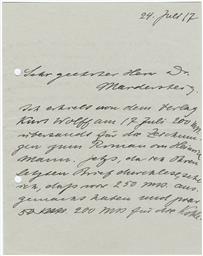 24. Juli 17
Sehr geehrter Herr Dr.
Mardersteig.
Ich erhielt von dem Verlag
Kurt Wolff am 17 Juli 200 M
übersandt für die Zeichnun-
gen zum Roman von Heinrich
Mann. Jetzt, da ich Ihren
letzten Brief durchlese, sehe
ich, dass wir 250 M. aus-
gemacht haben und zwar
200 M für die